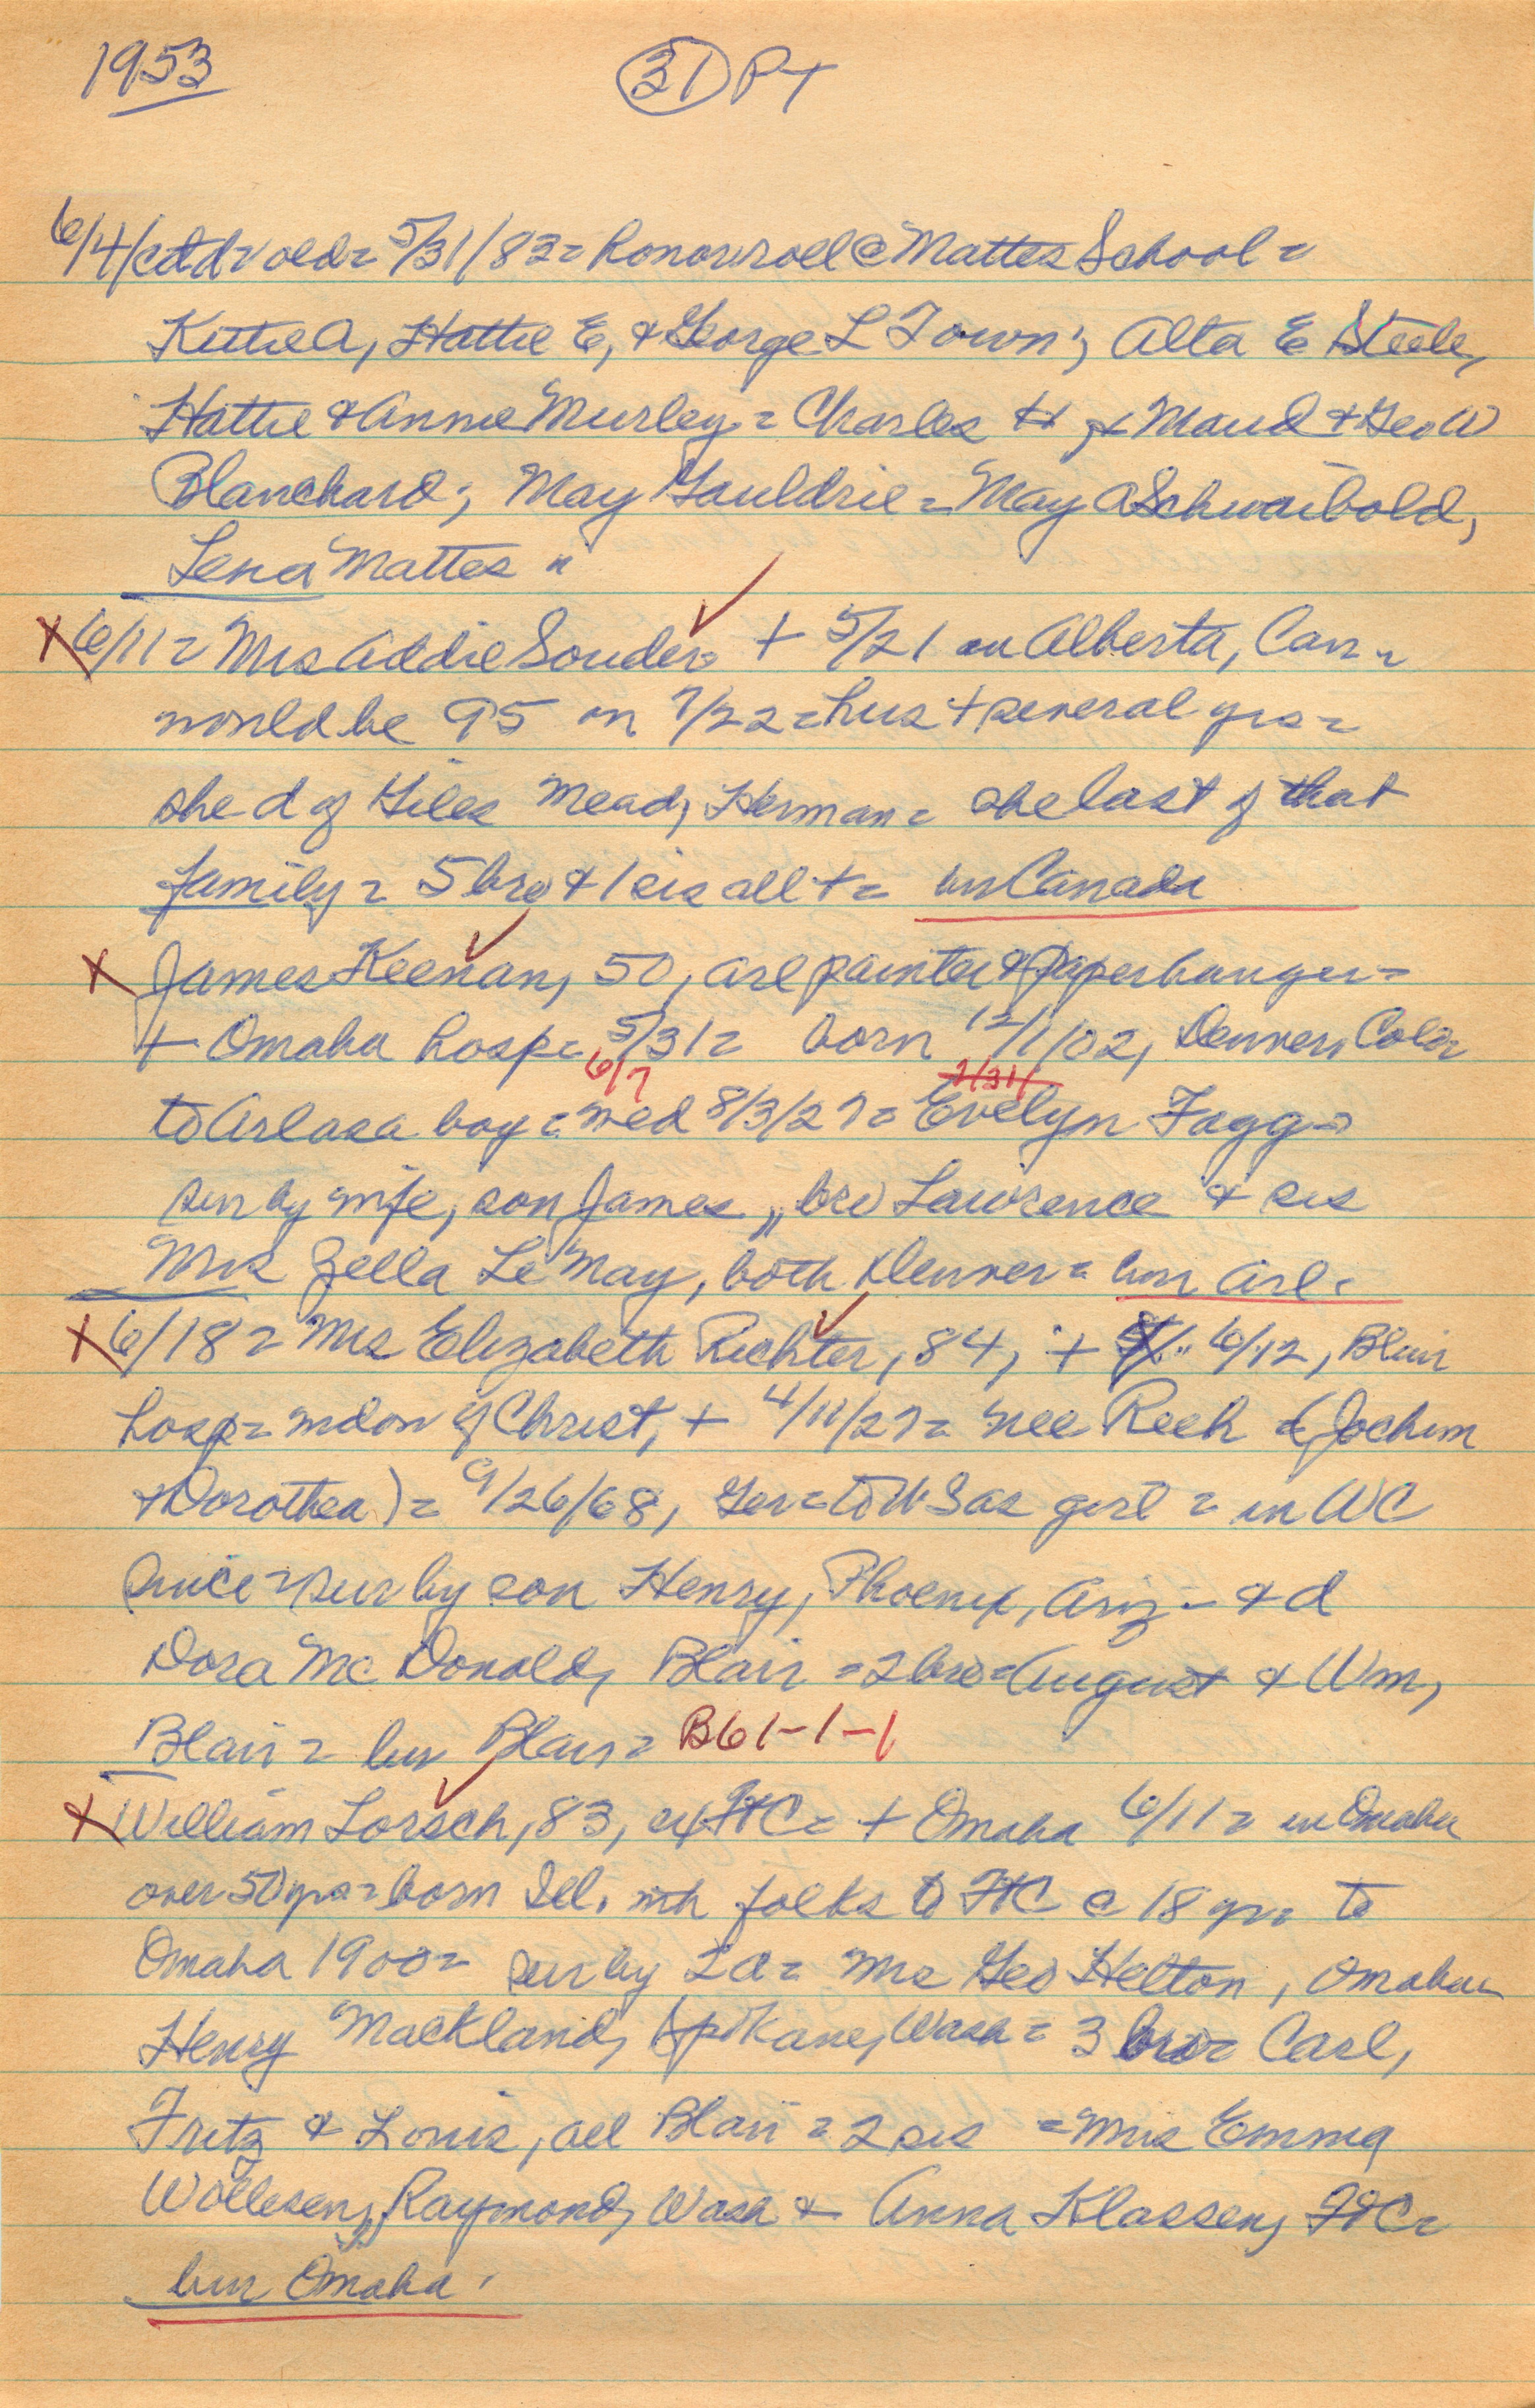 1953
31 PT
6/4/ctd = old = 5/31/83 = honor roll @ Mattes School =
Kittie A, Hattie E, & George L Town; Alta E Steele,
Hattie & Annie Murley = Charles H, & Maud & Geo W
Blanchard; May Gauldrie = May A Schwaibold,
Lena Mattes "
X 6/11 = Mrs Addie Souder = + 5/21 in Alberta, Can =
would be 95 on 7/22 = hus + several yrs =
she d of Giles Mead, Herman = she last of that
family = 5 bro & 1 sis all + = bur Canada
X James Keenan, 50, Arl painter & paperhanger =
+ Omaha hosp = 5/31 = born 12/1/02, Denver, Colo =
6/7 2/31/
to Arl as a boy = med 8/3/27 = Evelyn Fagg =
sur by wife, son James,, bro Lawrence & sis
Mrs Zella Le May, both Denver = bur Arl.
X 6/18 = Mrs Elizabeth Richter, 84, + 6/12, Blair
hosp = widow of Christ, + 4/11/27 = nee Reeh d (Jochim
& Dorothea) = 9/26/68, Ger = to U S as girl = in WC
since = sur by son Henry, Phoenix, Ariz = & d
Dora Mc Donald, Blair = 2 bro = August & Wm,
Blair = bur Blair = B61-1-1
X William Lorsch, 83, ex FtC = + Omaha 6/11 = in Omaha
over 50 yrs = born Ill. with folks to FtC @ 18 yr = to
Omaha 1900 = sur by 2 d = Mrs Geo Helton, Omaha =
Henry Mackland, Spokane, Wash = 3 bro = Carl,
Fritz & Louis, all Blair = 2 sis = Mrs Emma
Wollesen, Raymond, Wash & Anna Klassen, FtC =
bur Omaha.